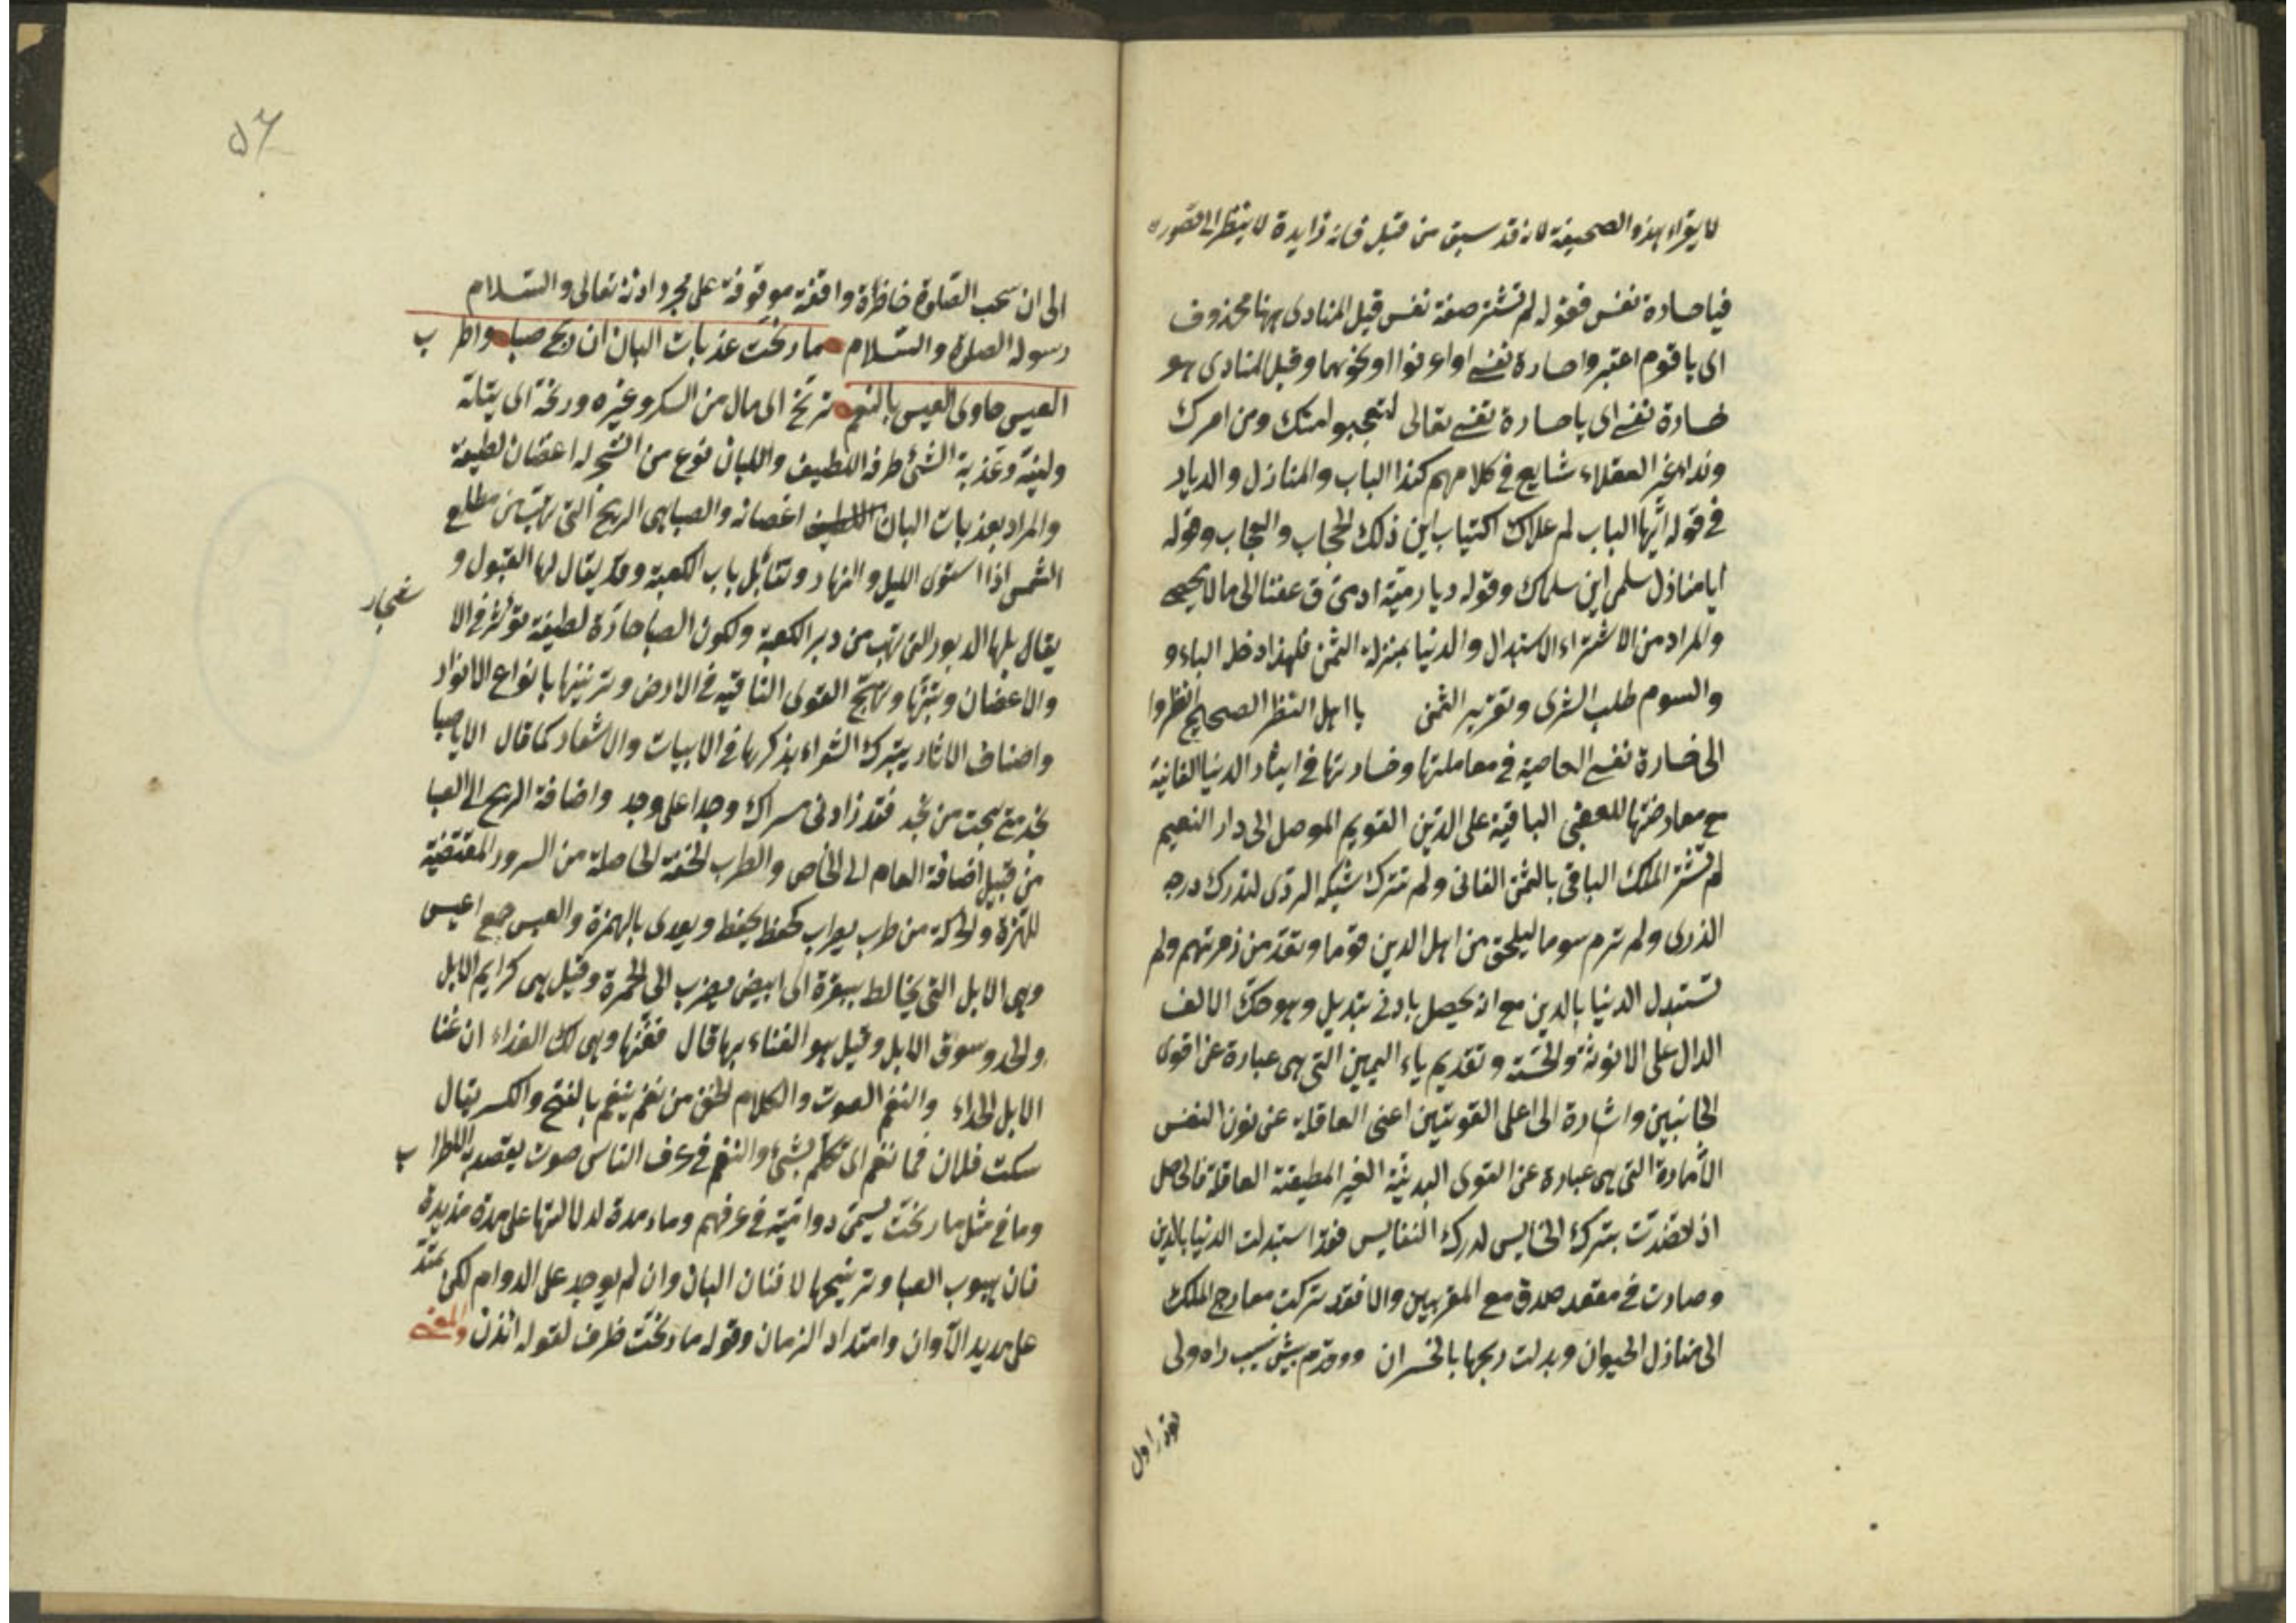 لا يقراء هذه الصحيفة لانه قد سبق من قبل فانه زايدة لا ينظر الى قصوره
فيا خسارة نفس فقوله لم تشتر صفة نفس قيل المنادى ههنا محذوف
اى يا قوم اعتبروا خسارة نفس او اعرفوا او نحوهما وقيل المنادى هو
خسارة نفس اى يا خسارة نفس تعالى لنتعجبوا منك ومن امرك
ونداء غير العقلاء شايع فى كلامهم كنداء الباب والمنازل والديار
فى قوله ايها الباب لم علاك اكتياب اين ذلك الحجاب والحجاب وقوله
ايا منازل سلمى اين سلماك وقوله ديار مية اد مى الى ما لا يحصى
والمراد من الاشتراء الاستبدال والدنيا بمنزلة الثمن فلهذا دخل الباء و
والسوم طلب الشرى وتقرير الثمن يا اهل النظر الصحيح انظروا
الى خسارة نفس العاصية فى معاملتها وخسارتها فى ايثار الدنيا الفانية
مع معارضتها للعقبى الباقية على الدين القويم الموصل الى دار النعيم
لم تشتر الملك الباقى بالثمن الفانى ولم تترك شبكة الردى لتدرك درجه
الذرى ولم ترم سوما ليلحق من اهل الدين قوما وتعد من زمرتهم ولم
تستبدل الدنيا بالدين مع انه يحصل بادنى تبديل وهو حك الالف
الدال على الانوثة والخسة وتقديم ياء اليمين التى هى عبارة عن اقوى
الجانبين واشارة الى اعلى القوتين اعنى العاقلة عن نون النفس
الأمارة التى هى عبارة عن القوى البدنية الغير المطيعة العاقلة فالحاصل
ان قصدت بترك الخسايس لدرك النفايس فقد استبدلت الدنيا بالدين
وصارت فى مقعد صدق مع المقربين والا فقد تركت معارج الملك
الى منازل الحيوان وبدلت ربحها بالخسران
ه٦
الى ان سحب الصلوة واقفة موقوفة على مجرد اذنه تعالى والسلام
رسوله الصلوة والسلام ما رنحت عذبات البان ان ريح صبا واطرب
العيس حاوى العيس بالنغم ترنح اى مال من السكر وغيره ورنحه اى يتاله
ولينة وعذبة الشئ طرفه اللطيف واللبان نوع من الشجر له اغصان لطيفة
والمراد بعذبات البان اغصانه والصبا هى الريح التى تهب من مطلع
الشمس اذا استوى الليل والنهار وتقابل باب الكعبة وقد يقال لها القبول و
يقابلها الدبور التى تهب من دبر الكعبة ولكون الصبا حارة لطيفة تؤثر فى الا
شجار
والاغصان وتنبتها وتهيج القوى النامية فى الارض وتزيينها بانواع الانوار
واصناف الاثار يتبرك الشعراء بذكرها فى الابيات والاشعار كما قال الا يا صبا
نجد متى هجت من نجد فقد زادنى مسراك وجدا على وجد واضافة الريح الى الصبا
من قبيل اضافة العام الى الخاص والطرب الخفة الحاصلة من السرور المقتضية
للهزة والحركة من طرب يطرب كحفظ يحفظ ويعدى بالهمزة والعيس جمع اعيس
وهى الابل التى يخالط بشقرة اى ابيض يضرب الى الحمرة وقيل هى كرايم الابل
والحدو سوق الابل وقيل هو الغناء بها قال فغنها وهى لك الفداء ان غنا
الابل الحداء والنغم الصوت والكلام الخفى من نغم ينغم بالفتح والكسر يقال
سكت فلان فما نغم اى تكلم بشئ والنغم فى عرف الناس صوت يقصد به اللطراب
وما فى مثل ما رنحت يسمى دوامية فى عرفهم وماء مدة لدلالتها على مدة مديدة
فان هبوب الصبا وترنيحها لافنان البان وان لم يوجد على الدوام لكن يمتد
على مديد الآوان وامتداد الزمان وقوله ما رنحت ظرف لقوله ائذن والمعنى